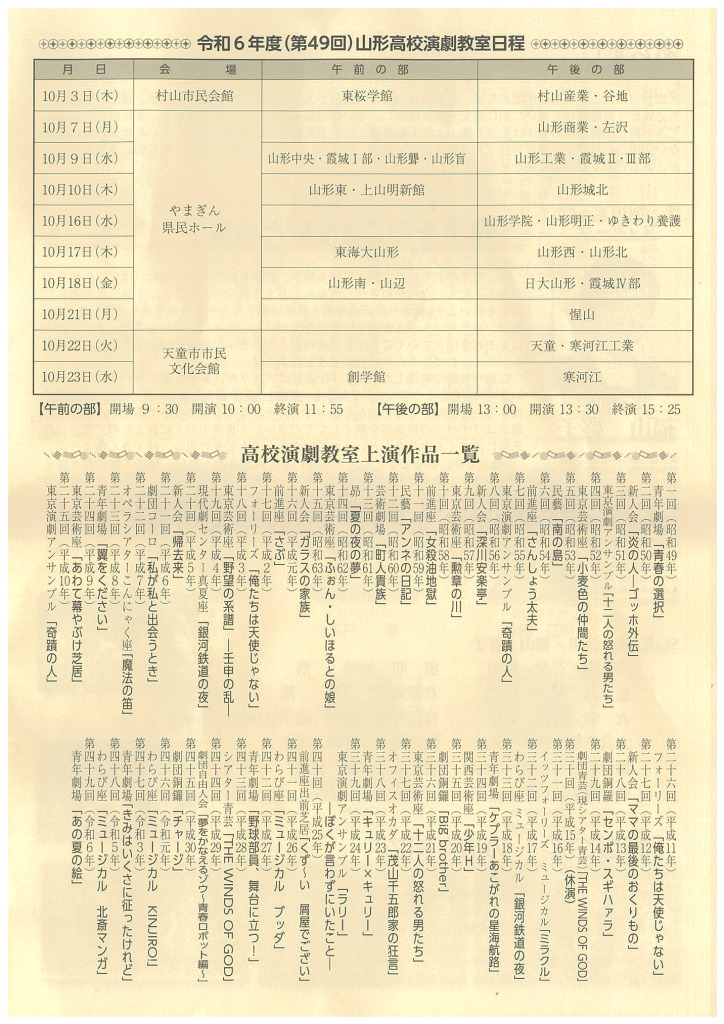 令和6年度(第49回)山形高校演劇教室日程
月 日 会 場 午前の部 午後の部
10月3日(木) 村山市民会館 東桜学館 村山産業・谷地
10月7日(月) 山形商業・左沢
10月9日(水) 山形中央・霞城Ⅰ部・山形聾・山形盲 山形工業・霞城Ⅱ・Ⅲ部
10月10日(木) 山形東・上山明新館 山形城北
やまぎん
県民ホール
10月16日(水) 山形学院・山形明正・ゆきわり養護
10月17日(木) 東海大山形 山形西・山形北
10月18日(金) 山形南・山辺 日大山形・霞城Ⅳ部
10月21日(月) 惺山
10月22日(火) 天童・寒河江工業
天童市市民
文化会館
10月23日(水) 創学館 寒河江
【午前の部】開場 9:30 開演 10:00 終演 11:55 【午後の部】開場 13:00 開演 13:30 終演 15:25
高校演劇教室上演作品一覧
第一回(昭和49年)
青年劇場「青春の選択」
第二回(昭和50年)
新人会「炎の人―ゴッホ外伝」
第三回(昭和51年)
東京演劇アンサンブル「十二人の怒れる男たち」
第四回(昭和52年)
東京芸術座「小麦色の仲間たち」
第五回(昭和53年)
民藝「南の島」
第六回(昭和54年)
前進座「さんしょう太夫」
第七回(昭和55年)
東京演劇アンサンブル「奇蹟の人」
第八回(昭和56年)
新人会「深川安楽亭」
第九回(昭和57年)
東京芸術座「勲章の川」
第十回(昭和58年)
前進座「女殺油地獄」
第十一回(昭和59年)
民藝「アンネの日記」
第十二回(昭和60年)
芸術劇場「町人貴族」
第十三回(昭和61年)
昴「夏の夜の夢」
第十四回(昭和62年)
東京芸術座「ふぉん・しいほるとの娘」
第十五回(昭和63年)
新人会「ガラスの家族」
第十六回(平成元年)
前進座「さぶ」
第十七回(平成2年)
フォーリーズ「俺たちは天使じゃない」
第十八回(平成3年)
東京芸術座「野望の系譜」―壬申の乱―
第十九回(平成4年)
現代劇センター真夏座「銀河鉄道の夜」
第二十回(平成5年)
新人会「帰去来」
第二十一回(平成6年)
劇団コーロ「私が私と出会うとき」
第二十二回(平成7年)
オペラシアターこんにゃく座「魔法の笛」
第二十三回(平成8年)
青年劇場「翼をください」
第二十四回(平成9年)
東京芸術座「あわて幕やぶけ芝居」
第二十五回(平成10年)
東京演劇アンサンブル「奇蹟の人」
第二十六回(平成11年)
フォーリーズ「俺たちは天使じゃない」
第二十七回(平成12年)
新人会「ママの最後のおくりもの」
第二十八回(平成13年)
劇団銅鑼「センポ・スギハァラ」
第二十九回(平成14年)
劇団青芸(現シアター青芸)「THE WINDS OF GOD」
第三十回(平成15年)(休演)
第三十一回(平成16年)
イッツフォーリーズ ミュージカル「ミラクル」
第三十二回(平成17年)
わらび座 ミュージカル「銀河鉄道の夜」
第三十三回(平成18年)
青年劇場「ケプラーあこがれの星海航路」
第三十四回(平成19年)
関西芸術座「少年H」
第三十五回(平成20年)
劇団銅鑼「Big brother」
第三十六回(平成21年)
東京芸術座「十二人の怒れる男たち」
第三十七回(平成22年)
オフィスオカダ「茂山千五郎家の狂言」
第三十八回(平成23年)
青年劇場「キュリー×キュリー」
第三十九回(平成24年)
東京演劇アンサンブル「ラリー」
―ぼくが言わずにいたこと―
第四十回(平成25年)
前進座出前芝居「くず～い 屑屋でござい」
第四十一回(平成26年)
わらび座「ミュージカル ブッダ」
第四十二回(平成27年)
青年劇場「野球部員、舞台に立つ!」
第四十三回(平成28年)
シアター青芸「THE WINDS OF GOD」
第四十四回(平成29年)
劇団自由人会「夢をかなえるゾウ～青春ロボット編～」
第四十五回(平成30年)
劇団銅鑼「チャージ」
第四十六回(令和元年)
わらび座「ミュージカル KINJIRO!」
第四十七回(令和3年)
青年劇場「きみはいくさに征ったけれど」
第四十八回(令和5年)
わらび座「ミュージカル 北斎マンガ」
第四十九回(令和6年)
青年劇場「あの夏の絵」